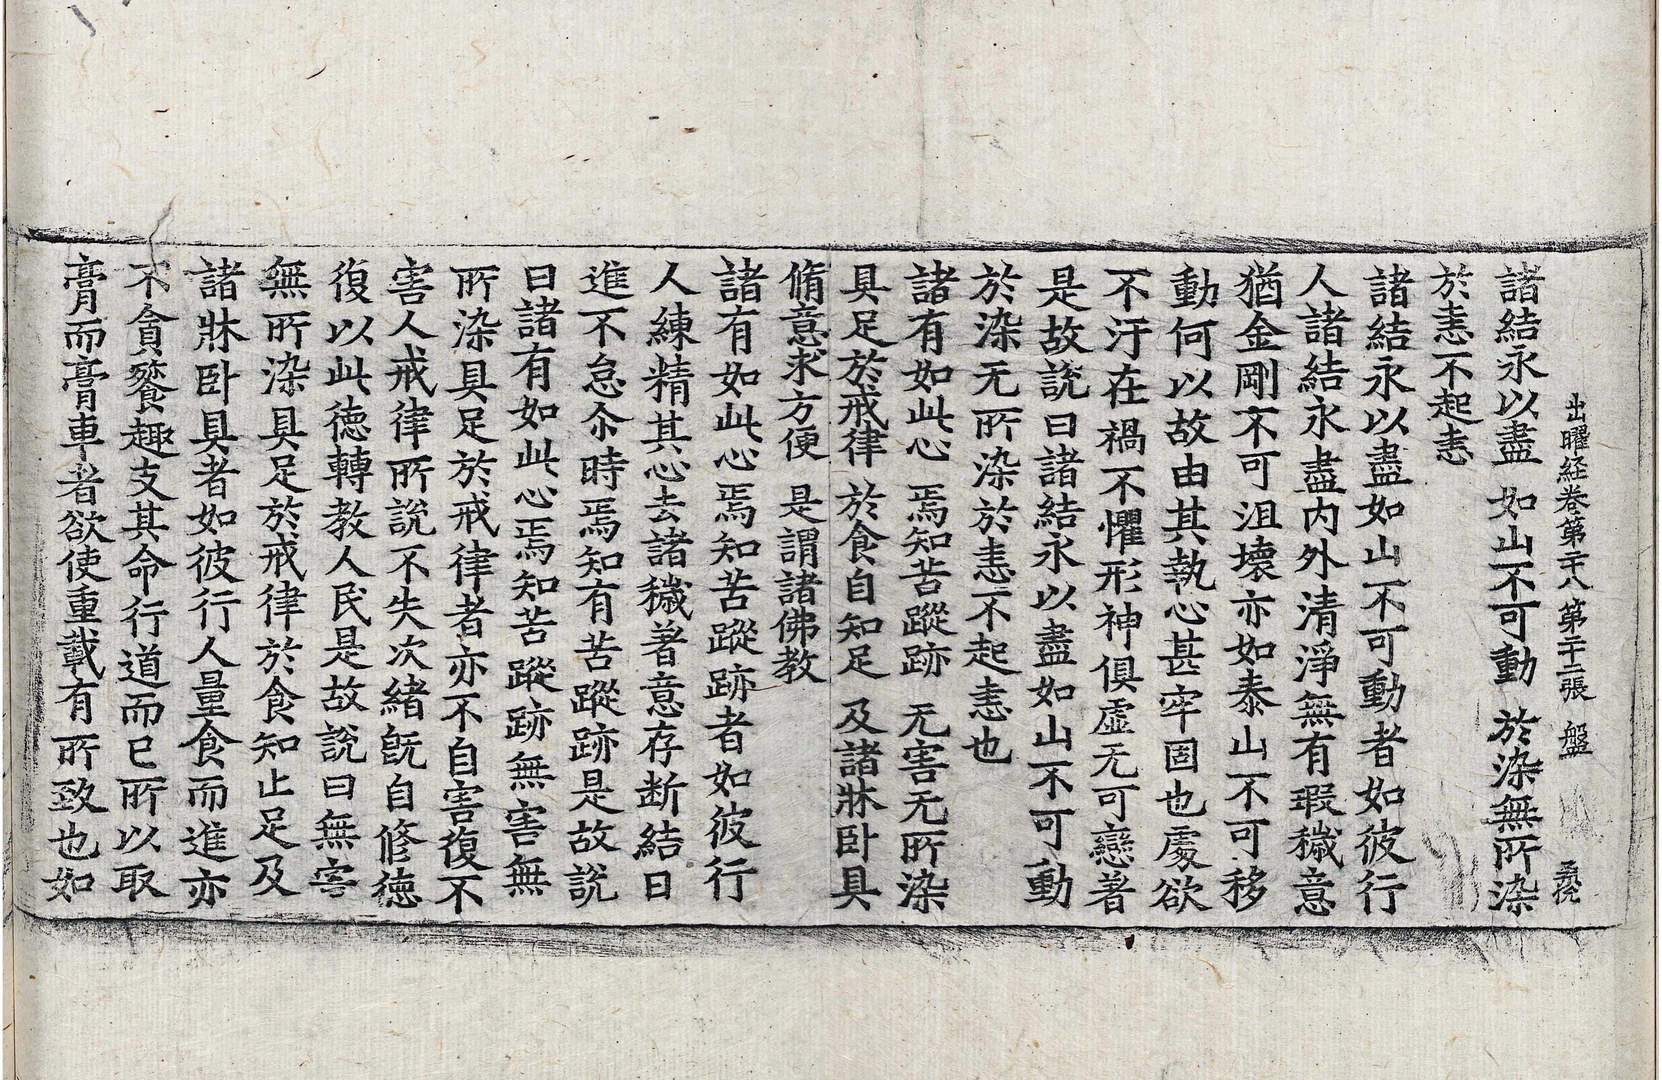 出曜経卷第二十八 第二十二張 盤
諸結永以盡 如山不可動 於染無所染
於恚不起恚
諸結永以盡如山不可動者如彼行
人諸結永盡内外清淨無有瑕穢意
猶金剛不可沮壞亦如泰山不可移
動何以故由其執心甚牢固也處欲
不汙在禍不懼形神俱虛无可戀著
是故說曰諸結永以盡如山不可動
於染无所染於恚不起恚也
諸有如此心 焉知苦蹤跡 无害无所染
具足於戒律 於食自知足 及諸牀卧具
脩意求方便 是謂諸佛教
諸有如此心焉知苦蹤跡者如彼行
人練精其心去諸穢著意存断結日
進不怠尒時焉知有苦蹤跡是故說
曰諸有如此心焉知苦蹤跡無害無
所染具足於戒律者亦不自害復不
害人戒律所說不失次緒旣自修徳
復以此徳轉教人民是故說曰無害
無所染具足於戒律於食知止足及
諸牀卧具者如彼行人量食而進亦
不貪餮趣支其命行道而已所以取
膏而膏車者欲使重載有所致也如